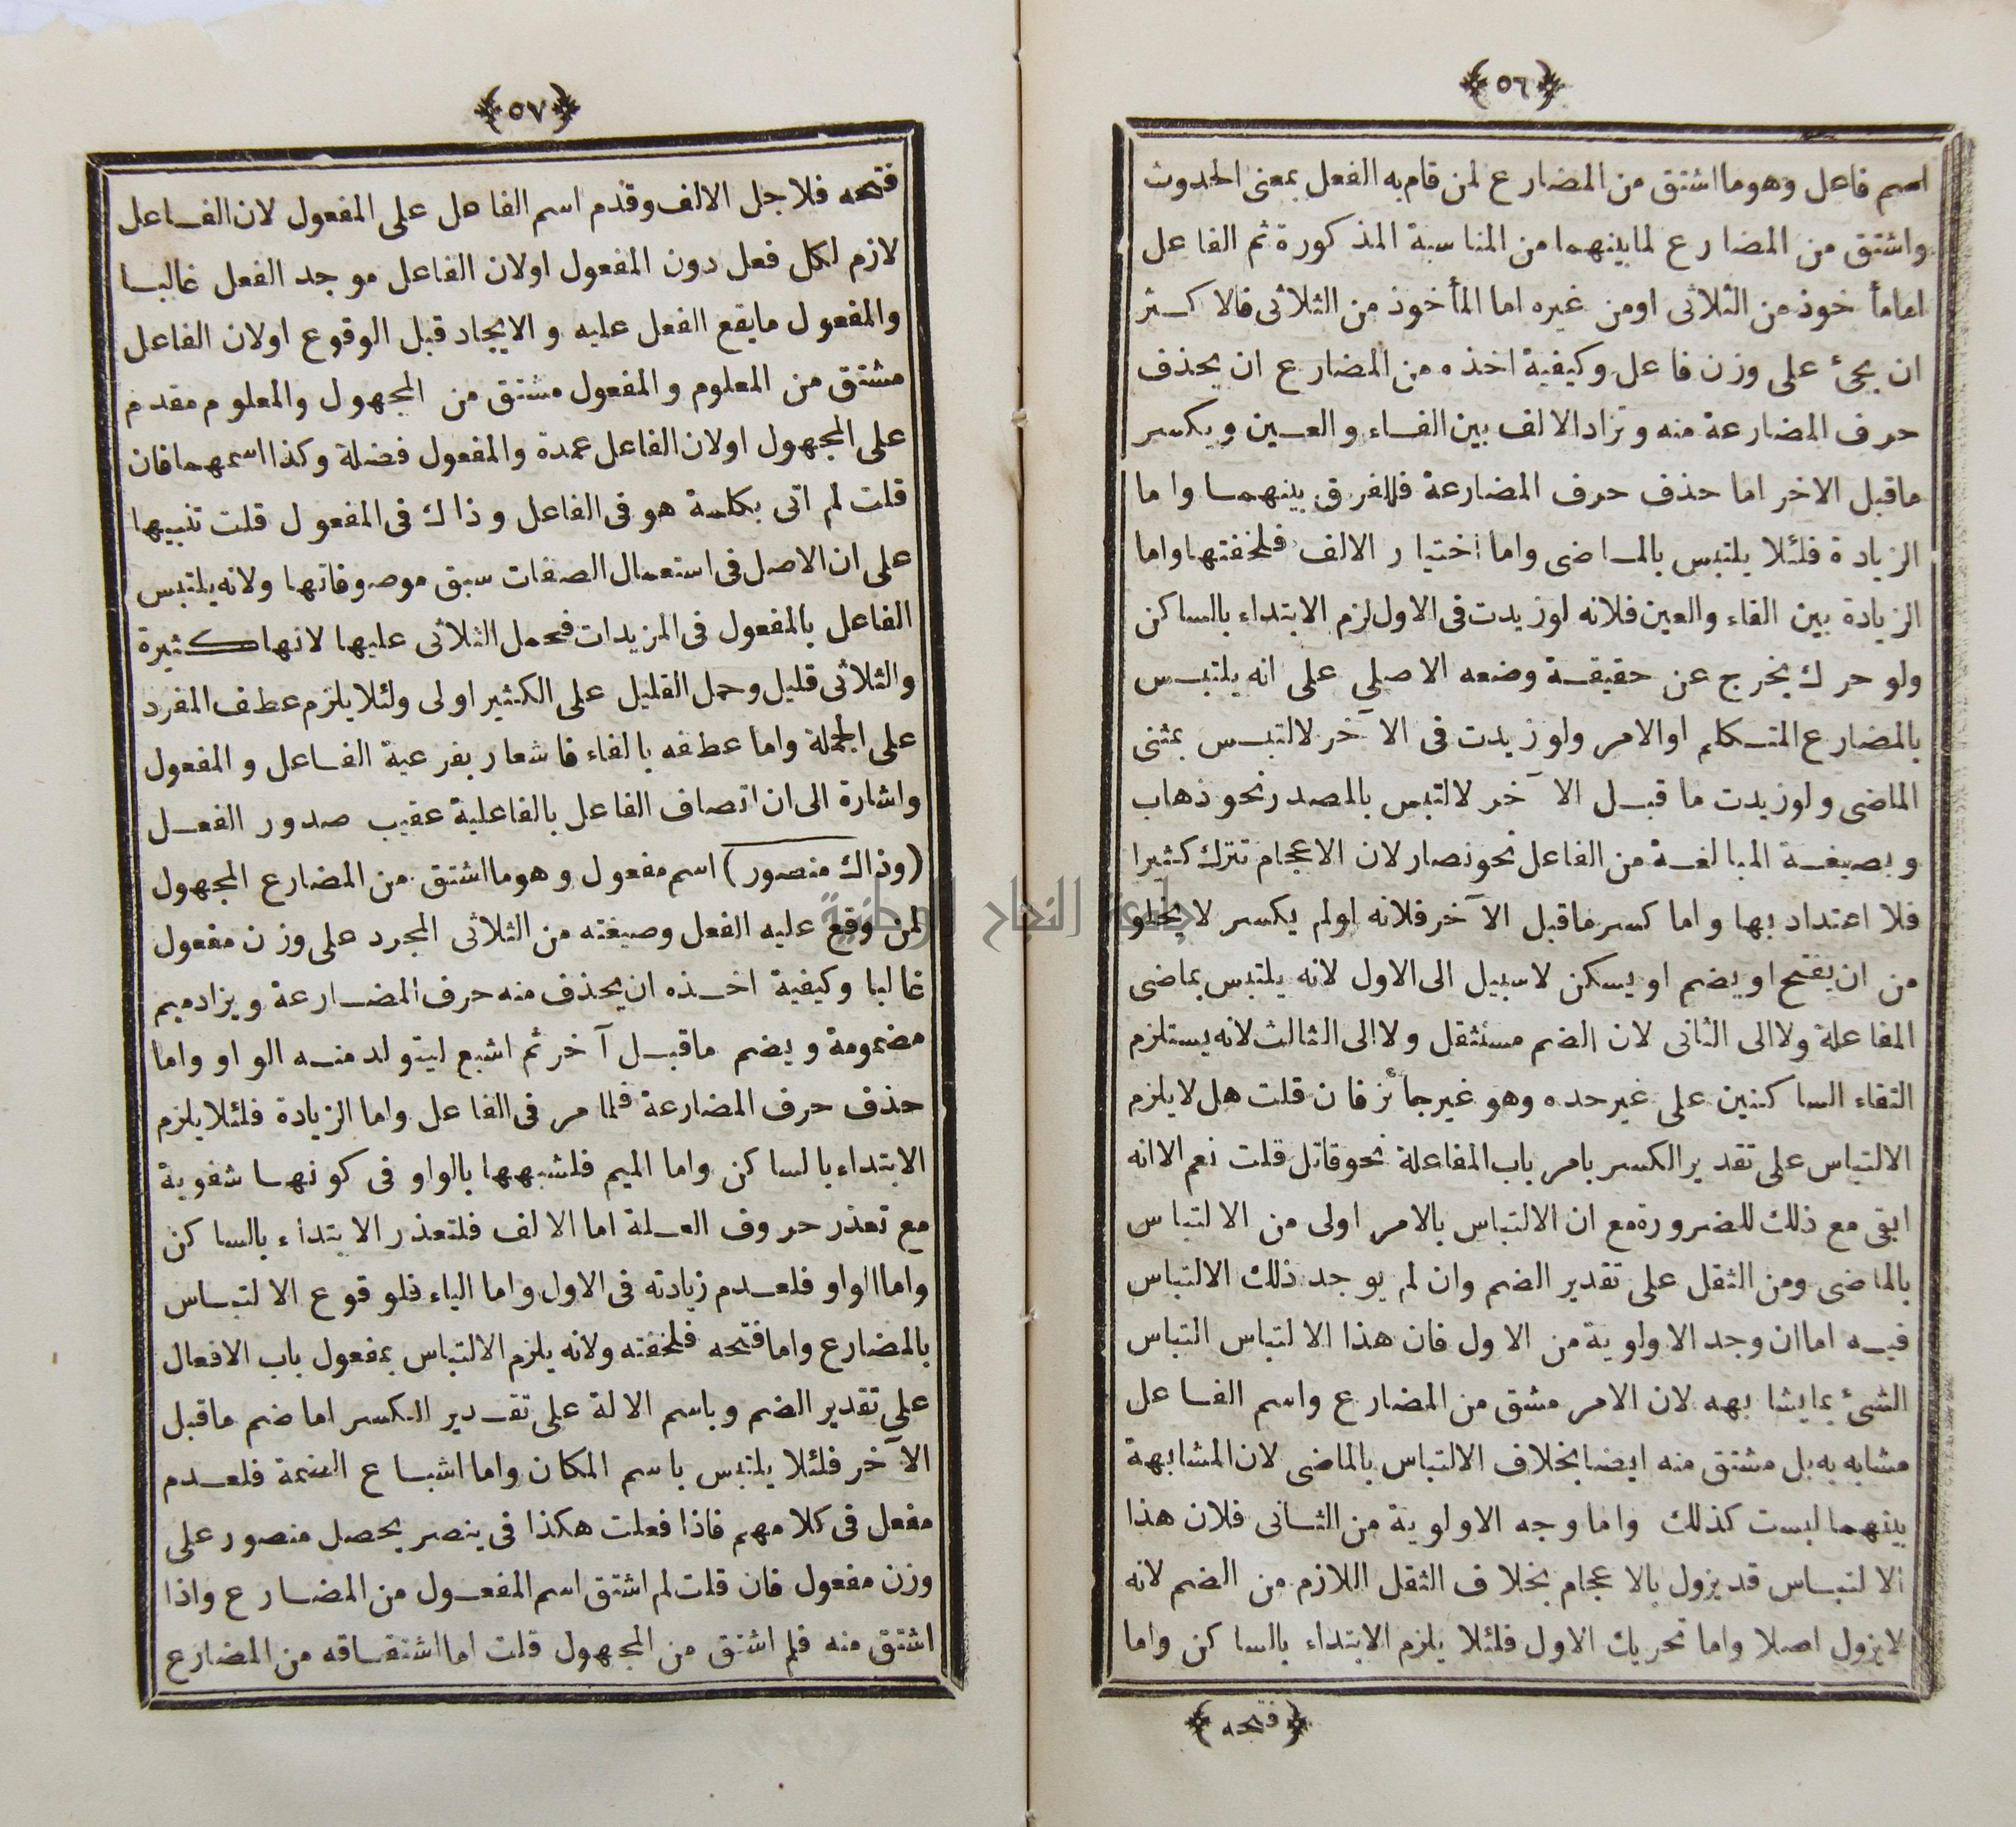 ﴿٥٦﴾
اسم فاعل وهوما اشتق من المضارع لمن قام به الفعل بمعنى الحدوث
واشتق من المضارع لمابينهما من المناسبة المذكورة ثم الفاعل
امامأخوذ من الثلاثى اومن غيره اما المأخوذ من الثلاثى فالاكثر
ان يجئ على وزن فاعل وكيفية اخذه من المضارع ان يحذف
حرف المضارعة منه وتزاد الالف بين الفاء والعين ويكسر
ماقبل الاخر اما حذف حرف المضارعة فللفرق بينهما واما
الزيادة فلئلا يلتبس بالماضى واما اختيار الالف فلخفتها واما
الزيادة بين الفاء والعين فلانه لوزيدت فى الاول لزم الابتداء بالساكن
ولو حرك يخرج عن حقيقة وضعه الاصلي على انه يلتبس
بالمضارع المتكلم اوالامر ولوزيدت فى الآخر لالتبس بمثنى
الماضى ولوزيدت ماقبل الآخر لالتبس بالمصدر نحو ذهاب
وبصيغة المبالغة من الفاعل نحو نصار لان الاعجام تترك كثيرا
فلا اعتداد بها واما كسر ماقبل الآخر فلانه لولم يكسر لايخلو
من ان يفتح اويضم اويسكن لاسبيل الى الاول لانه يلتبس بماضى
المفاعلة ولاالى الثانى لان الضم مستثقل ولاالى الثالث لانه يستلزم
التقاء الساكنين على غير حده وهو غير جائز فان قلت هل لايلزم
الالتباس على تقدير الكسر بامر باب المفاعلة نحو قاتل قلت نعم الاانه
ابقى مع ذلك للضرورة مع ان الالتباس بالامر اولى من الالتباس
بالماضى ومن الثقل على تقدير الضم وان لم يوجد ذلك الالتباس
فيه اماان وجد الاولوية من الاول فان هذا الالتباس التباس
الشئ بمايشابهه لان الامر مشق من المضارع واسم الفاعل
مشابه به بل مشتق منه ايضا بخلاف الالتباس بالماضى لان المشابهة
بينهما ليست كذلك واما وجه الاولوية من الثانى فلان هذا
الالتباس قديزول بالاعجام بخلاف الثقل اللازم من الضم لانه
لايزول اصلا واما تحريك الاول فلئلا يلزم الابتداء بالساكن واما
﴿فتحه﴾
﴿٥٧﴾
فتحه فلاجل الالف وقدم اسم الفاعل على المفعول لان الفاعل
لازم لكل فعل دون المفعول اولان الفاعل موجد الفعل غالبا
والمفعول مايقع الفعل عليه والايجاد قبل الوقوع اولان الفاعل
مشتق من المعلوم والمفعول مشتق من المجهول والمعلوم مقدم
على المجهول اولان الفاعل عمدة والمفعول فضلة وكذا اسمهما فان
قلت لم اتى بكلمة هو فى الفاعل وذاك فى المفعول قلت تنبيها
على ان الاصل فى استعمال الصفات سبق موصوفاتها ولانه يلتبس
الفاعل بالمفعول فى المزيدات فحمل الثلاثى عليها لانها كثيرة
والثلاثى قليل وحمل القليل على الكثير اولى ولئلا يلزم عطف المفرد
على الجملة واما عطفه بالفاء فاشعار بفرعية الفاعل والمفعول
واشارة الى ان اتصاف الفاعل بالفاعلية عقيب صدور الفعل
(وذاك منصور) اسم مفعول وهوما اشتق من المضارع المجهول
لمن وقع عليه الفعل وصيغته من الثلاثى المجرد على وزن مفعول
غالبا وكيفية اخذه ان يحذف منه حرف المضارعة ويزاد ميم
مضمومة ويضم ماقبل آخر ثم اشبع ليتولد منه الواو واما
حذف حرف المضارعة فلما مر فى الفاعل واما الزيادة فلئلا يلزم
الابتداء بالساكن واما الميم فلشبهها بالواو فى كونها شفوية
مع تعذر حروف العلة اما الالف فلتعذر الابتداء بالساكن
واما الواو فلعدم زيادته فى الاول واما الياء فلوقوع الالتباس
بالمضارع واما فتحه فلخفته ولانه يلزم الالتباس بمفعول باب الافعال
على تقدير الضم وباسم الالة على تقدير الكسر اما ضم ماقبل
الآخر فلئلا يلتبس باسم المكان واما اشباع الضمة فلعدم
مفعل فى كلامهم فاذا فعلت هكذا فى ينصر يحصل منصور على
وزن مفعول فان قلت لم اشتق اسم المفعول من المضارع واذا
اشتق منه فلم اشتق من المجهول قلت اما اشتقاقه من المضارع
جامعة النجاح الوطنية